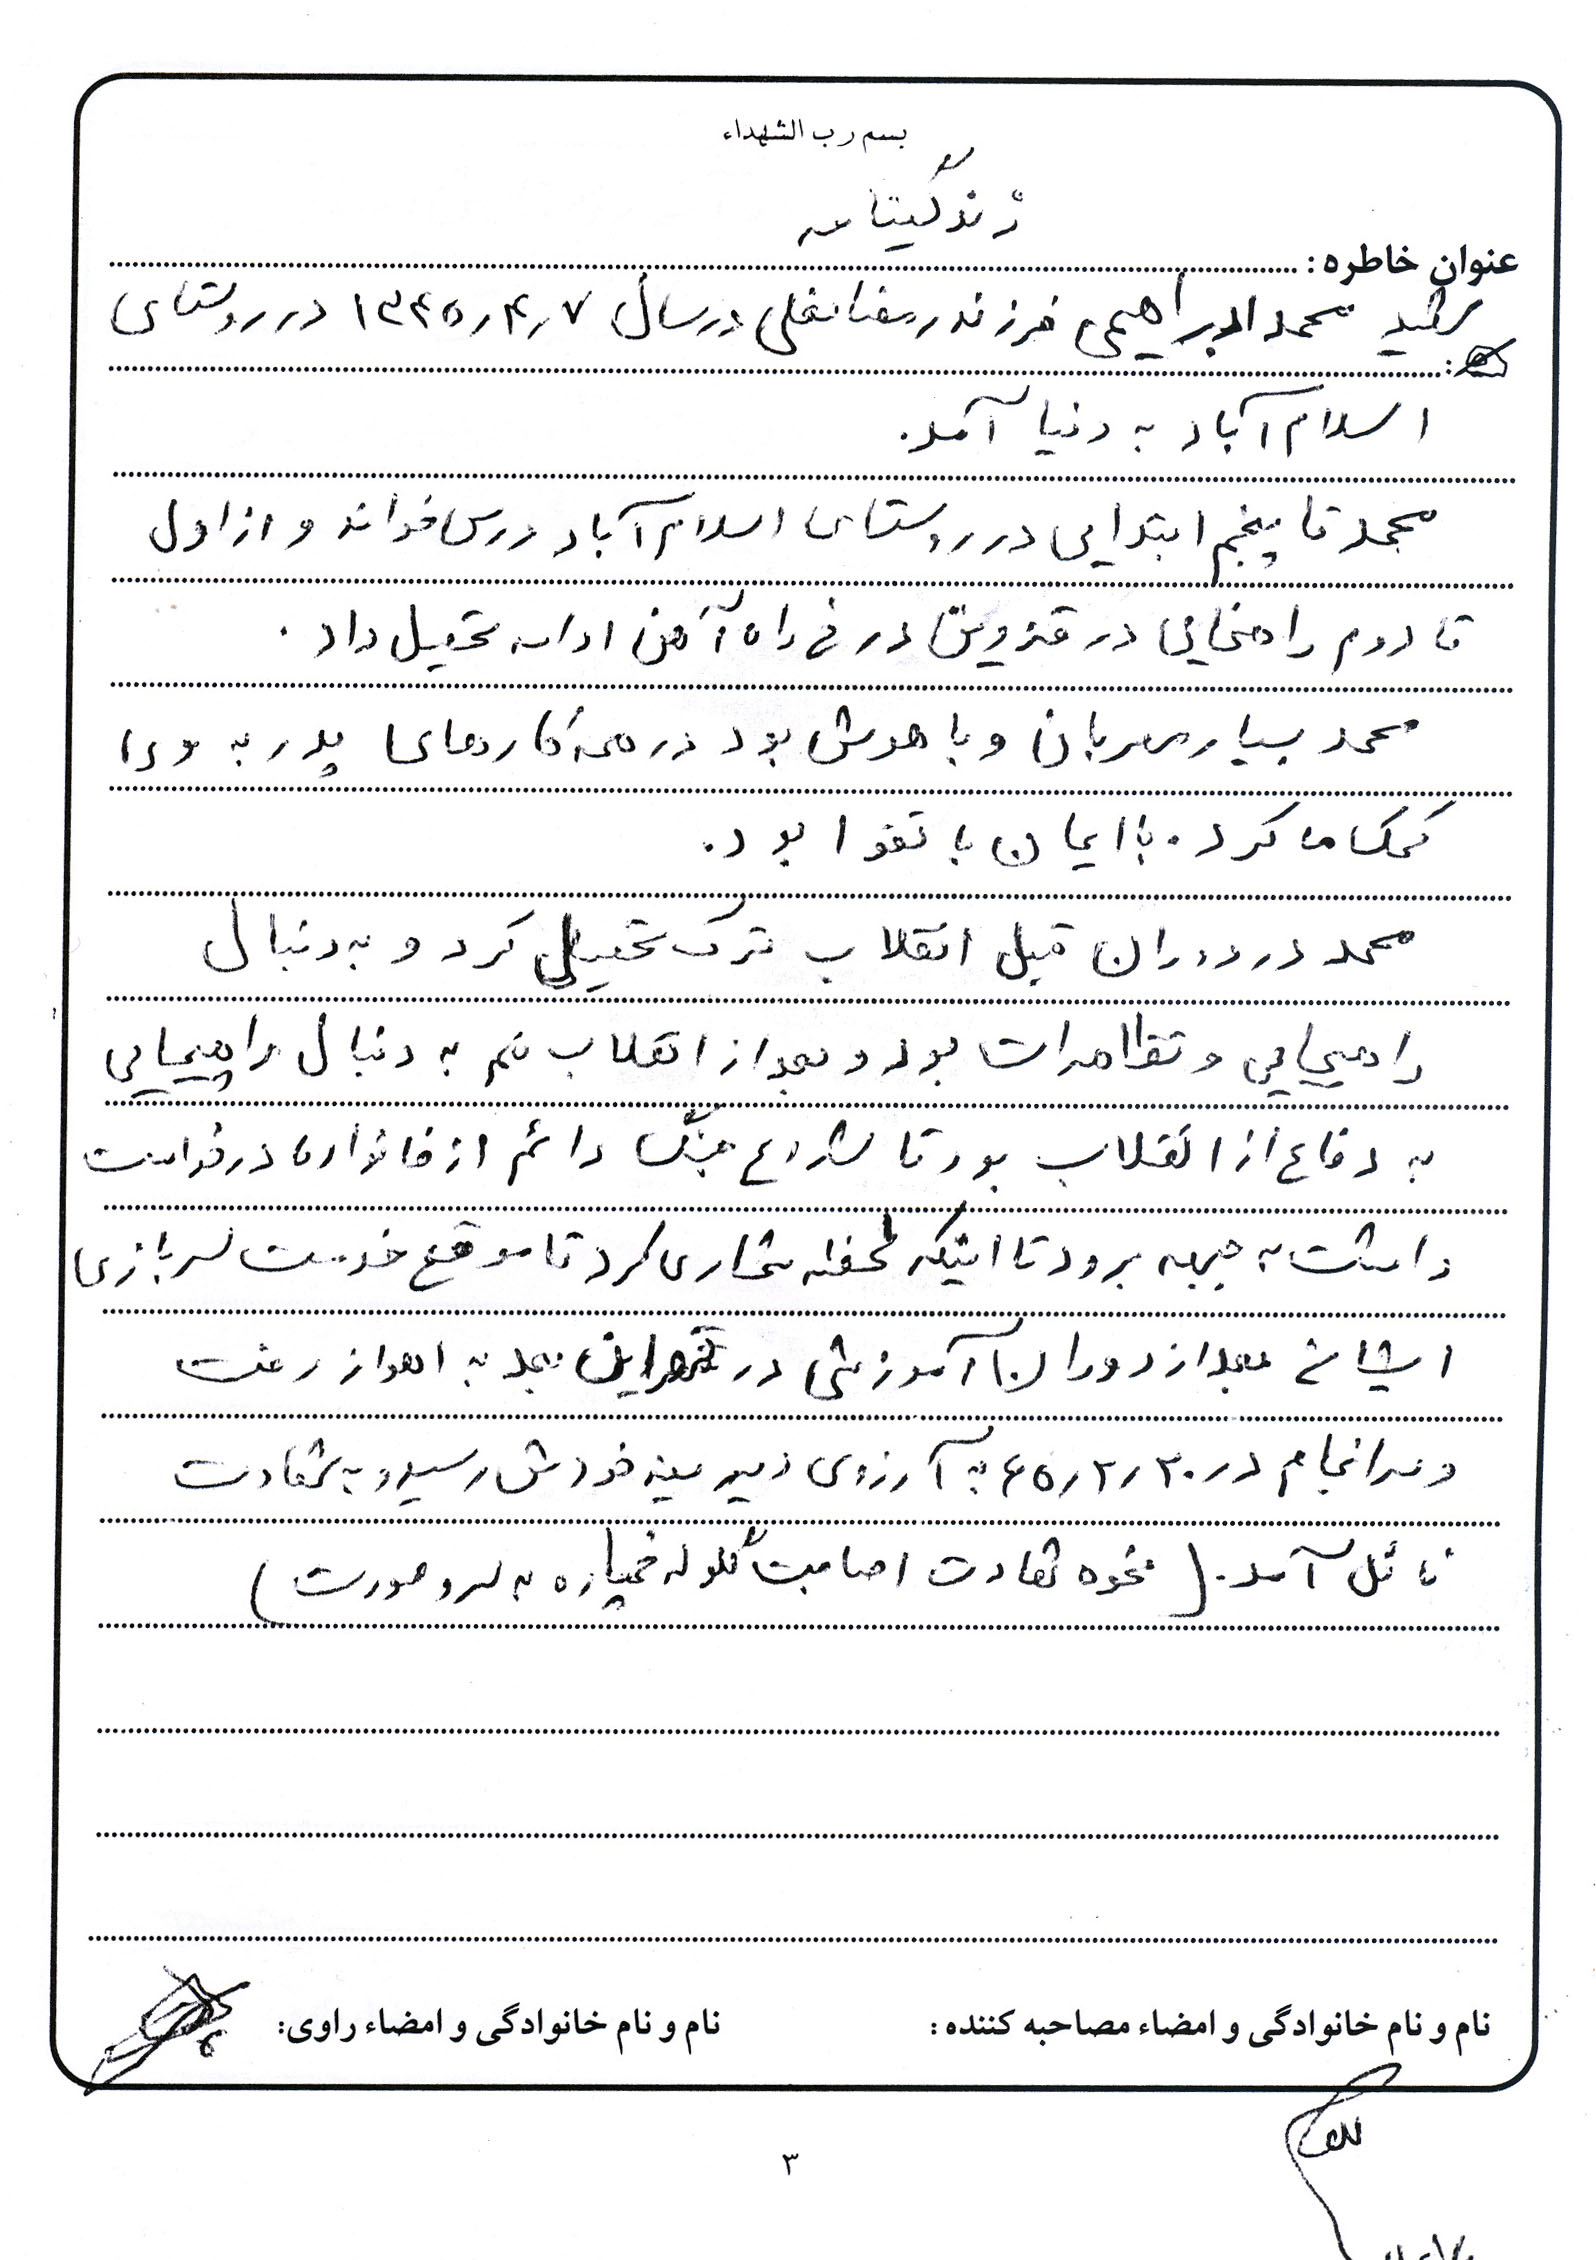 بسم رب الشهداء
زندگینامه
عنوان خاطره :
شهید محمد ابراهیمی فرزند رمضانعلی در سال ۱۳۴۵٫۴٫۷ در روستای
اسلام آباد به دنیا آمد.
محمد تا پنجم ابتدایی در روستای اسلام آباد درس خواند و از اول
تا دوم راهنمایی در قزوین در راه آهن ادامه تحصیل داد.
محمد بسیار مهربان و با هوش بود در همه کارهای پدر به او را
کمک ما کرد. با ایمان با تقوا بود.
محمد در دوران قبل انقلاب ترک تحصیل کرد و به دنبال
راهپیمایی و تظاهرات بود و بعد از انقلاب هم به دنبال راهپیمایی
به دفاع از انقلاب بود تا شروع جنگ دائم از خانواده درخواست
داشت به جبهه برود تا اینکه لحظه شماری کرد تا موقع خدمت سربازی
ایشان بعد از دوران آموزشی در تهران بعد به اهواز رفت
و سرانجام در ۶۵٫۲٫۳۰ به آرزوی دیرینه خودش رسید و به شهادت
نائل آمد. (نحوه شهادت اصابت گلوله خمپاره به سر و صورت)
نام و نام خانوادگی و امضاء مصاحبه کننده :
نام و نام خانوادگی و امضاء راوی:
۳